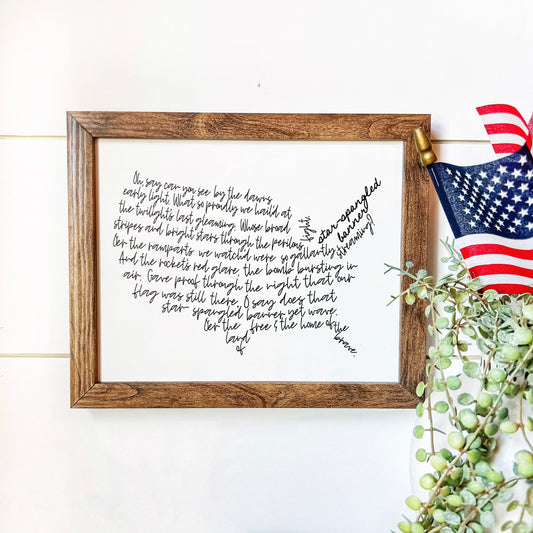 Oh, say can you see by the dawns
early light. What so proudly we hail'd at
the twilights last gleaming. Whose broad
stripes and bright stars through the perilous light
Oer the ramparts we watch'd were so gallantly streaming?
And the rockets red glare, the bomb bursting in
air. Gave proof through the night that our
flag was still there, O say does that
star spangled banner yet wave.
Oer the free & the home of the brave.
land
of
star-spangled
banner